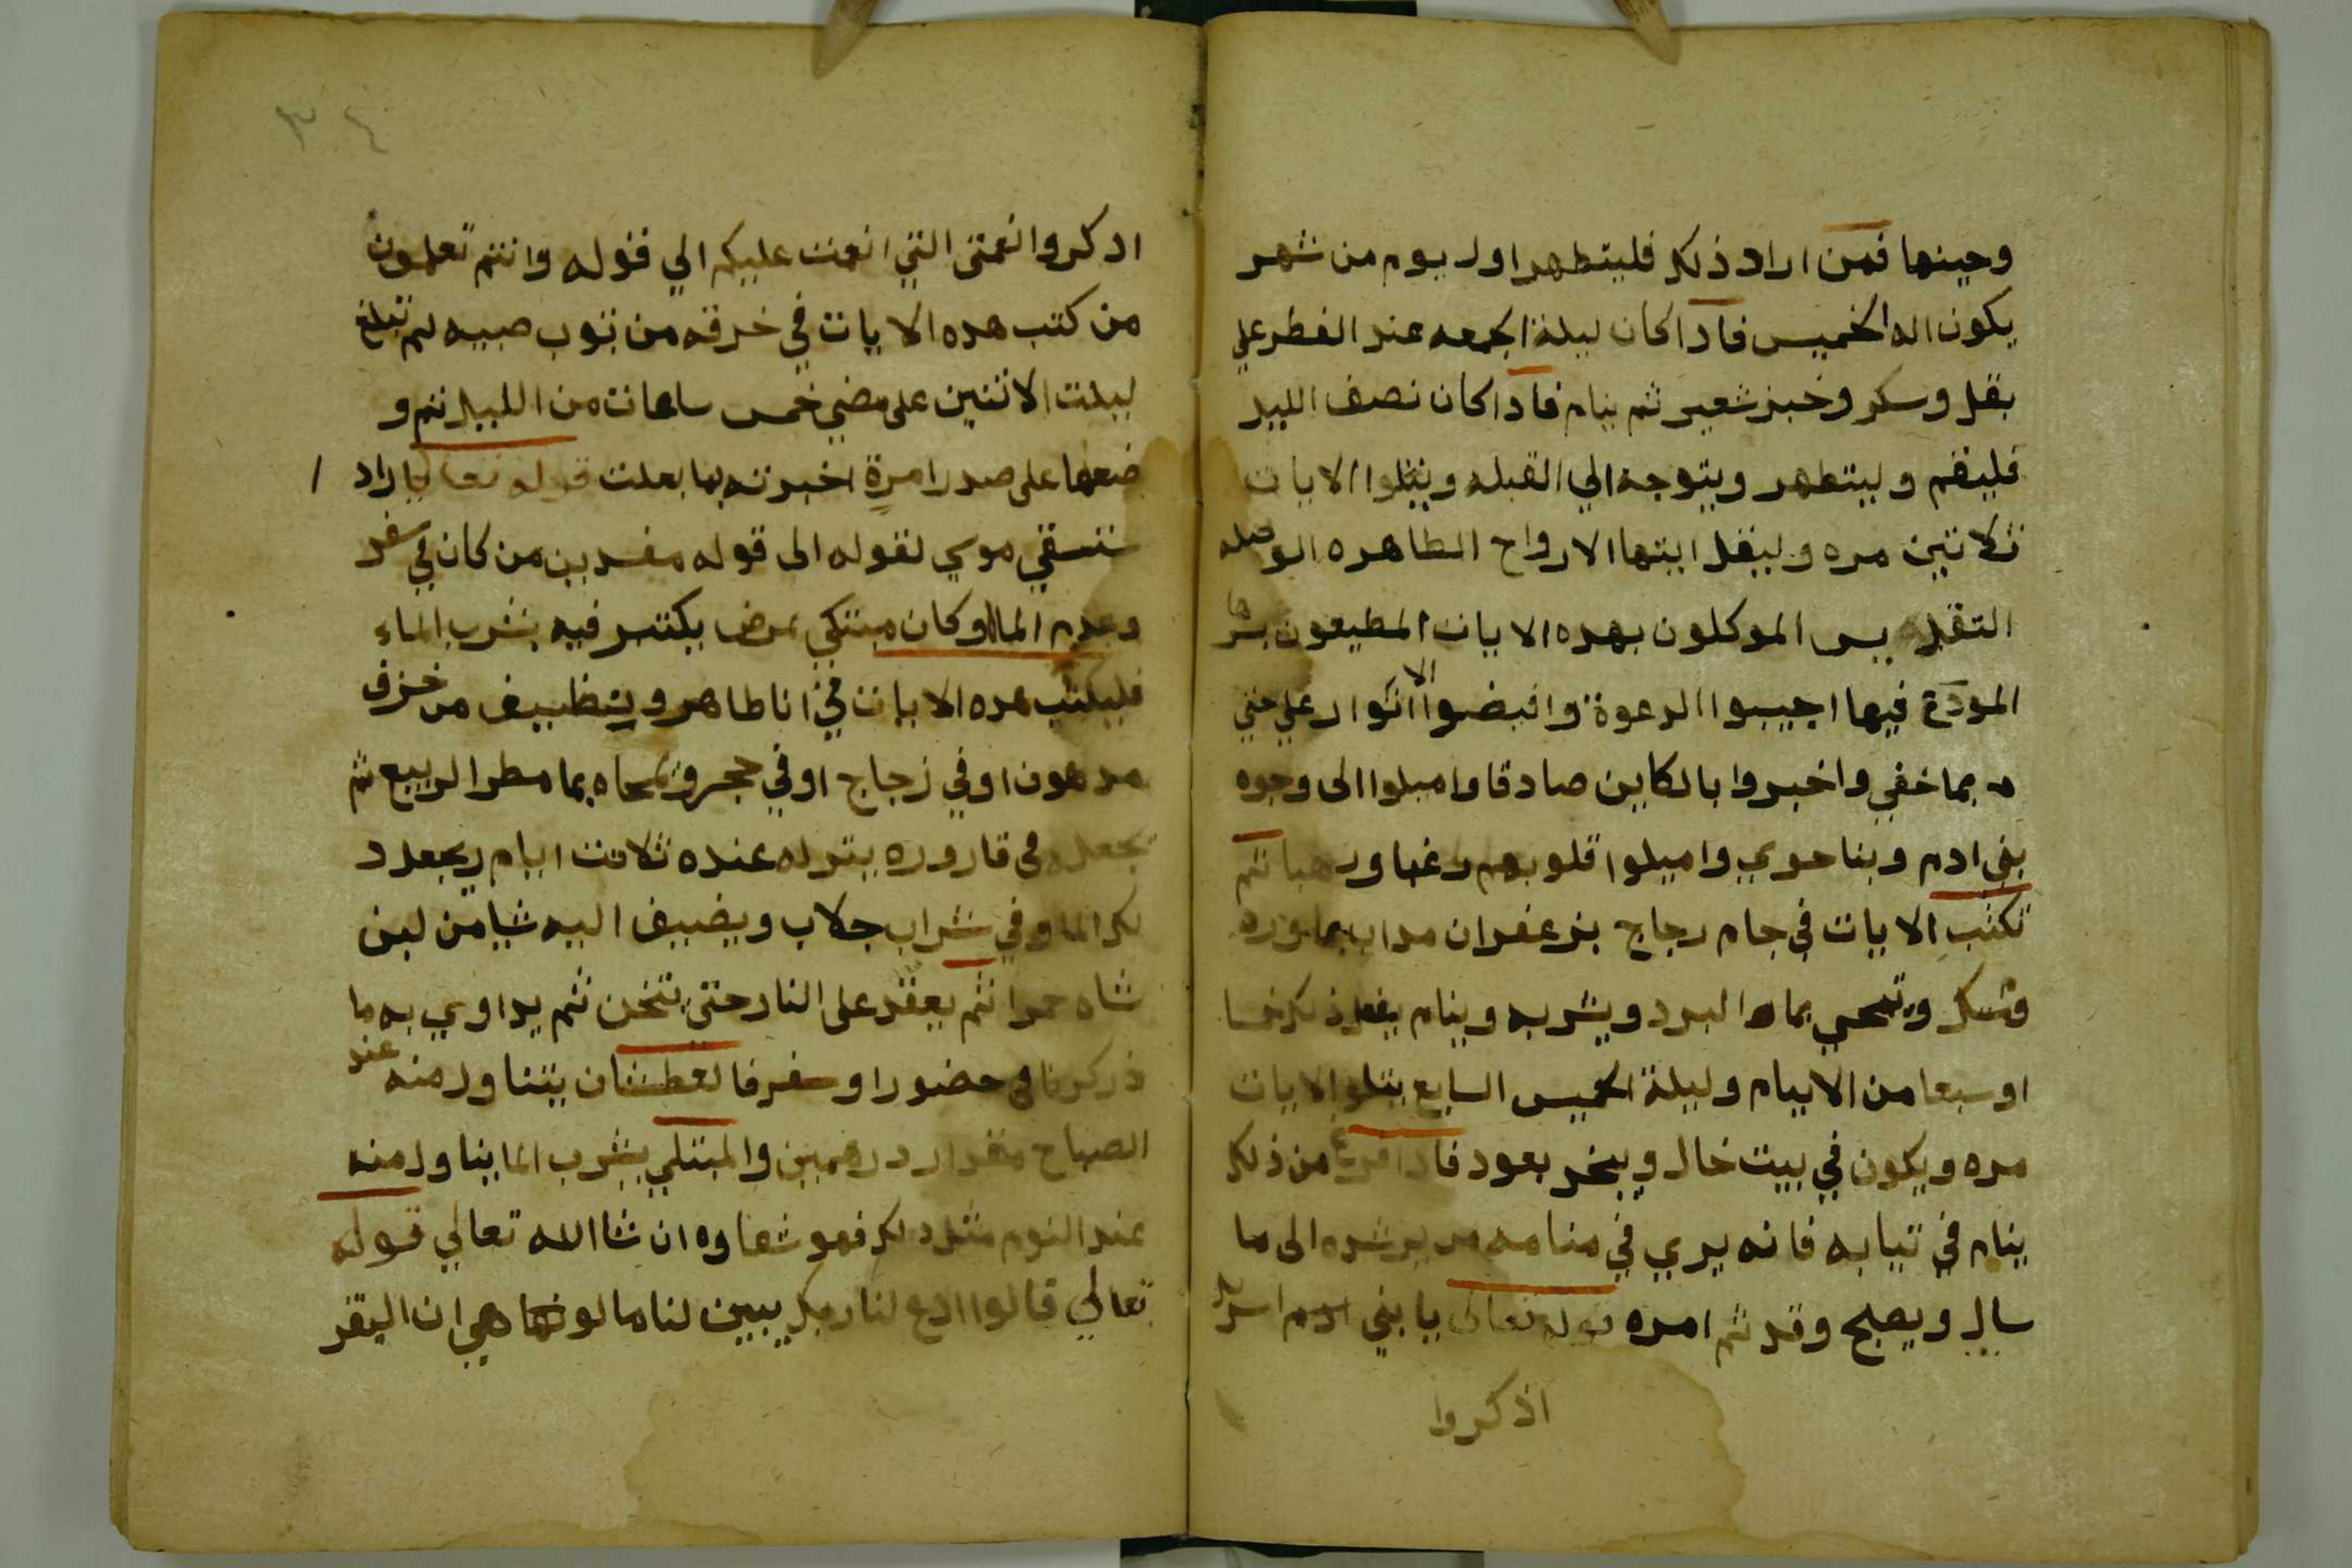 وحينها فمن اراد ذلك فليتطهر اول يوم من شهر
يكون اله الخميس فادا كان ليلة الجمعه عند الفطر علي
بقل وسكر وخبز شعير ثم ينام فادا كان نصف الليل
فليقم وليتطهر ويتوجه الي القبله ويتلوا الايات
ثلاثين مره وليقل ايتها الارواح الطاهره
الموكلون بهده الايات المطيعون بسرها
المودع فيها اجيبوا الدعوة وافيضوا الانوار علي حتي
بما خفي واخبروا بالكاين صادقا واميلوا الي وجوه
بني ادم وبنا حوي واميلوا قلوبهم رغبا ورهبا ثم
تكتب الايات في جام رجاج بزعفران مداب بماورد
وتمحي بماء البرد ويشربه وينام يفعل ذلك خمسا
او سبعا من الاييام وليلة الخميس السابع يتلو الايات
مره ويكون في بيت خال ويبخر بعود فادا فرغ من ذلك
ينام في تيابه فانه يري في منامه من يرشده الى ما
سال ويصبح وقد تم امره قوله تعالى يا بني ادم اسرايل
اذكروا
ادكروا نعمتي التي انعمت عليكم الي قوله وانتم تعلمون
من كتب هده الايات في خرقه من توب صبيه لم تبلغ
ليلت الاتنين على مضي خمس ساعات من الليل ثم و
ضعها على صدر امرة اخبرته بما بعلت قوله تعالى
ستسقي موسي لقوله الى قوله مفسدين من كان في سفر
وعدم الماء وكان مبتلي بمرض يكتسر فيه بشرب الماء
فليكتب هده الايات في انا طاهر ونظيف من خزف
مدهون او في زجاج او في حجر وتمحاه بما مطر الربيع ثم
تجعله في قاروره يتركه عنده تلاتت ايام يجعل د
لك الما وفي شراب جلاب ويضيف اليه شيا من لبن
شاه حمرا ثم يعقد على النار حتي تتخن ثم يداوي به ما
ذكرنا في حضور او سفر فالعطشان يتناول منه عند
الصباح مقدار درهمين والمبتلي بشرب الما يتناول منه
عند النوم مثل دلك فهو شفاوه ان شا الله تعالي قوله
تعالي قالوا ادع لنا ربك يبين لنا ما لونها هي ان البقر
٣٤